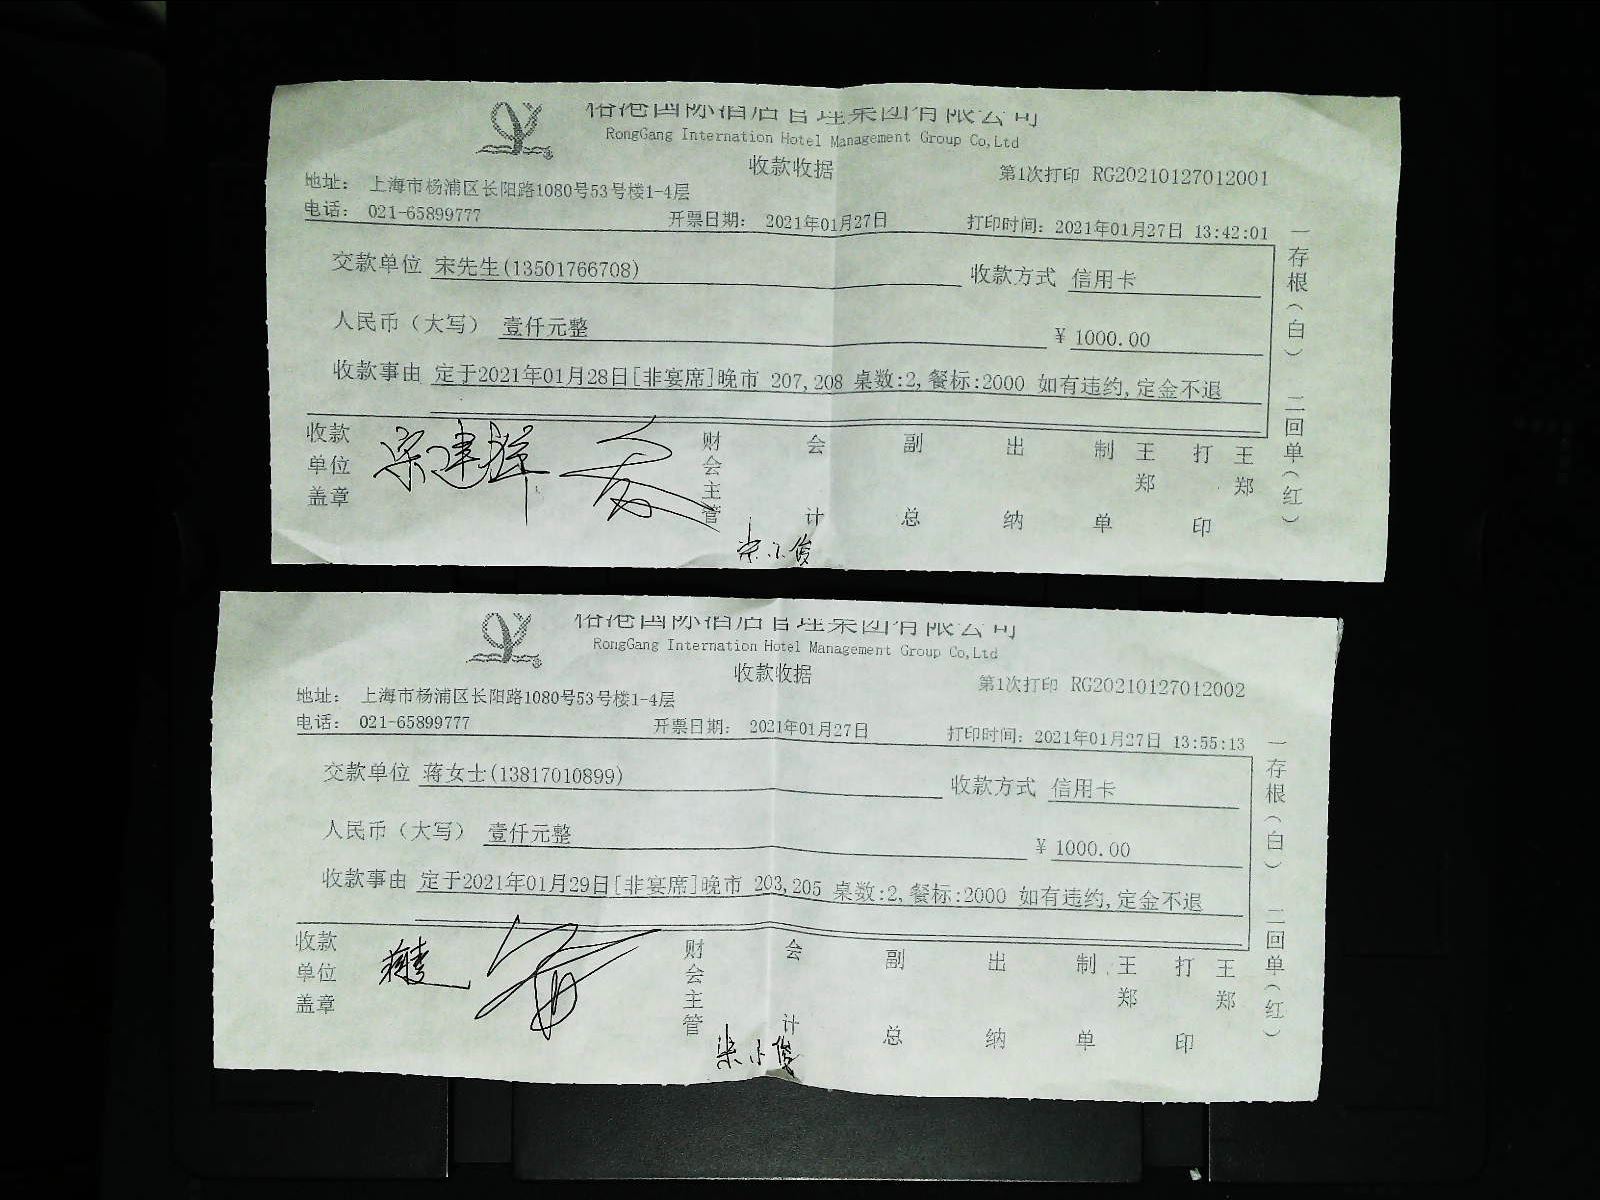 榕港国际酒店管理集团有限公司
RongGang Internation Hotel Management Group Co,Ltd
收款收据
第1次打印 RG20210127012001
地址： 上海市杨浦区长阳路1080号53号楼1-4层
电话： 021-65899777 开票日期： 2021年01月27日 打印时间：2021年01月27日 13:42:01
交款单位 宋先生(13501766708) 收款方式 信用卡
人民币（大写） 壹仟元整 ¥ 1000.00
收款事由 定于2021年01月28日[非宴席]晚市 207,208 桌数:2,餐标:2000 如有违约,定金不退
收款单位盖章 财会主管 会计 副总 出纳 制单 王郑 打印 王郑
一存根（白） 二回单（红）
榕港国际酒店管理集团有限公司
RongGang Internation Hotel Management Group Co,Ltd
收款收据
第1次打印 RG20210127012002
地址： 上海市杨浦区长阳路1080号53号楼1-4层
电话： 021-65899777 开票日期： 2021年01月27日 打印时间：2021年01月27日 13:55:13
交款单位 蒋女士(13817010899) 收款方式 信用卡
人民币（大写） 壹仟元整 ¥ 1000.00
收款事由 定于2021年01月29日[非宴席]晚市 203,205 桌数:2,餐标:2000 如有违约,定金不退
收款单位盖章 财会主管 会计 副总 出纳 制单 王郑 打印 王郑
一存根（白） 二回单（红）